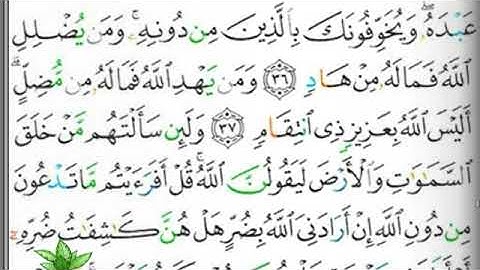 عَبْدَهُۥ ۖ وَيُخَوِّفُونَكَ بِٱلَّذِينَ مِن دُونِهِۦ ۚ وَمَن يُضْلِلِ
ٱللَّهُ فَمَا لَهُۥ مِنْ هَادٍ ٣٦ وَمَن يَهْدِ ٱللَّهُ فَمَا لَهُۥ مِن مُّضِلٍّ ۗ
أَلَيْسَ ٱللَّهُ بِعَزِيزٍ ذِى ٱنتِقَامٍ ٣٧ وَلَئِن سَأَلْتَهُم مَّنْ خَلَقَ
ٱلسَّمَٰوَٰتِ وَٱلْأَرْضَ لَيَقُولُنَّ ٱللَّهُ ۚ قُلْ أَفَرَءَيْتُم مَّا تَدْعُونَ
مِن دُونِ ٱللَّهِ إِنْ أَرَادَنِىَ ٱللَّهُ بِضُرٍّ هَلْ هُنَّ كَٰشِفَٰتُ ضُرِّهِۦٓ